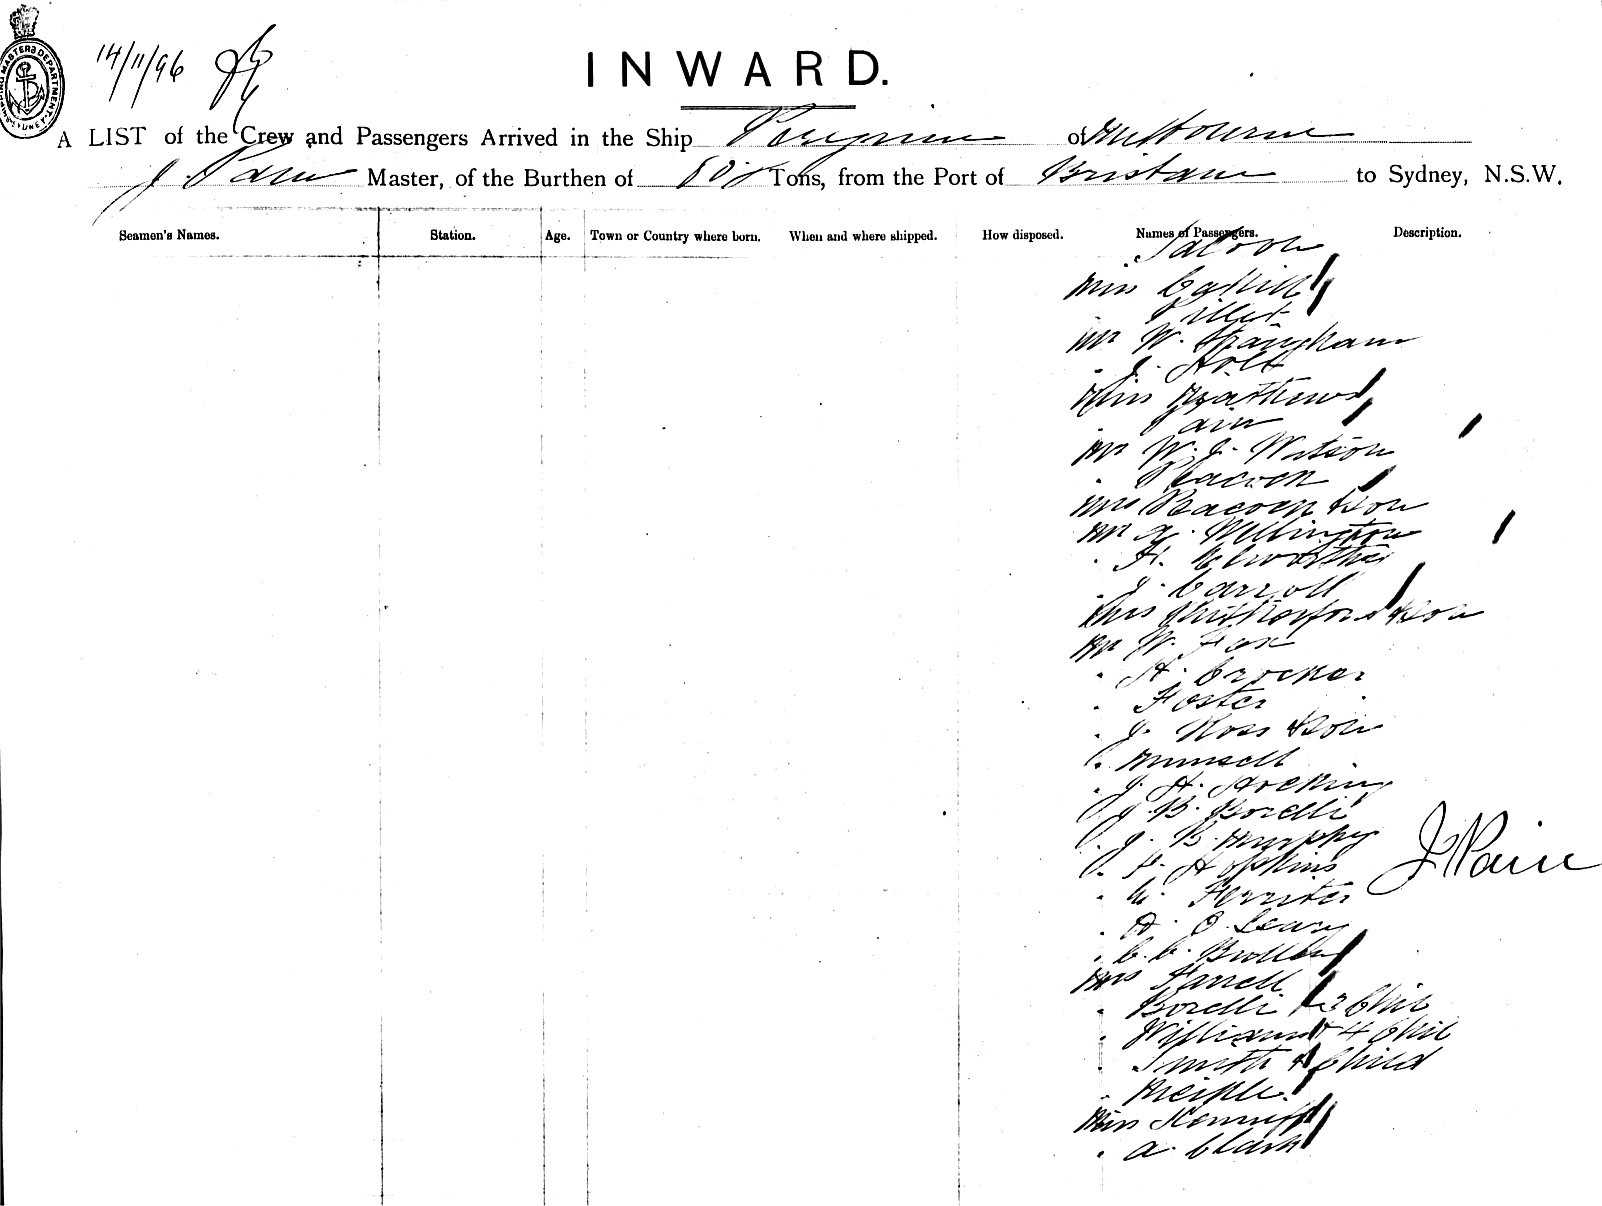 SHIPPING MASTERS DEPARTMENT SYDNEY
14/11/96
INWARD.
A LIST of the Crew and Passengers Arrived in the Ship Peregrine of Melbourne
J. Pain Master, of the Burthen of Tons, from the Port of Brisbane to Sydney, N.S.W.
Seamen's Names. Station. Age. Town or Country where born. When and where shipped. How disposed. Names of Passengers. Description.
Saloon
Miss Cahill
Mr W.
" J. Holt
Miss Mathews
" Pain
Mr W. J. Watson
" Peacock
Mrs Peacock & Son
Mr A. Wellington
" F. Elworthy
" J. Carroll
Mrs & Son
Mr W. Fox
" H. Crocker
" Foster
" J. Ross & Son
" Munsell
" J. H. Hocking
" J. B. Borelli
" J. B. Murphy
" P. Hopkins
" W. Ferriter
" D. O. Leary
" C. C.
Mrs Farrell
" Borelli & 3 Chil
" Williams & 4 Chil
" Smith & Child
"
Miss Kenniff
" A. Clark
J Pain